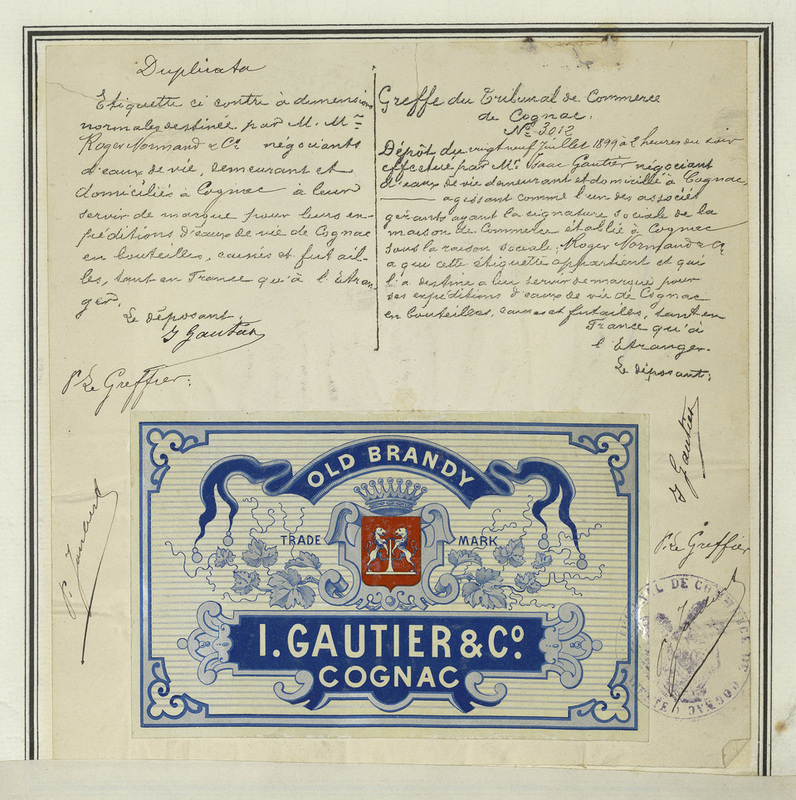 Duplicata
Etiquette ci contre à dimensions
normales destinée par M. M.rs
Roger Normand & Cie négociants
d'eaux de vie, demeurant et
domiciliés à Cognac à leur
servir de marque pour leurs ex-
péditions d'eaux de vie de Cognac
en bouteilles, caisses et futail-
les, tant en France qu'à l'Etran-
ger.
Le déposant.
I Gautier
Pr Le Greffier:
Greffe du Tribunal de Commerce
de Cognac.
No 3012
Dépôt du vingt neuf Juillet 1899 à 2 heures du soir
effectué par Mr Isaac Gautier négociant
d'eaux de vie demeurant et domicilié à Cognac,
agissant comme l'un des associés
gérants ayant la signature sociale de la
maison de Commerce établie à Cognac
sous la raison sociale: Roger Normand & Cie
a qui cette étiquette appartient et qui
l'a destine a lui servir de marque pour
ses expéditions d'eaux de vie de Cognac
en bouteilles, caisses et futailles, tant en
France qu'à
l'Etranger.
Le déposant:
I Gautier
Pr Le Greffier
OLD BRANDY
TRADE MARK
I. GAUTIER & Co.
COGNAC
TRIBUNAL DE COMMERCE DE COGNAC